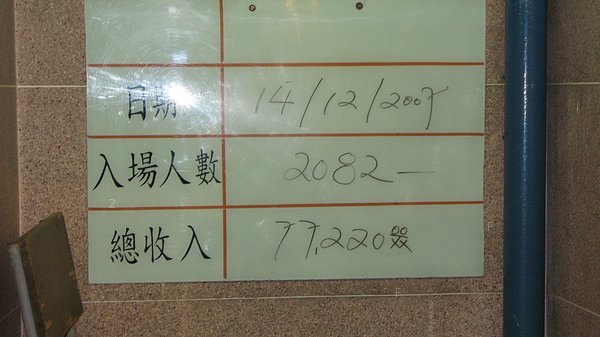 日期 14/12/2007
入場人數 2082—
總收入 77,220 00/XX